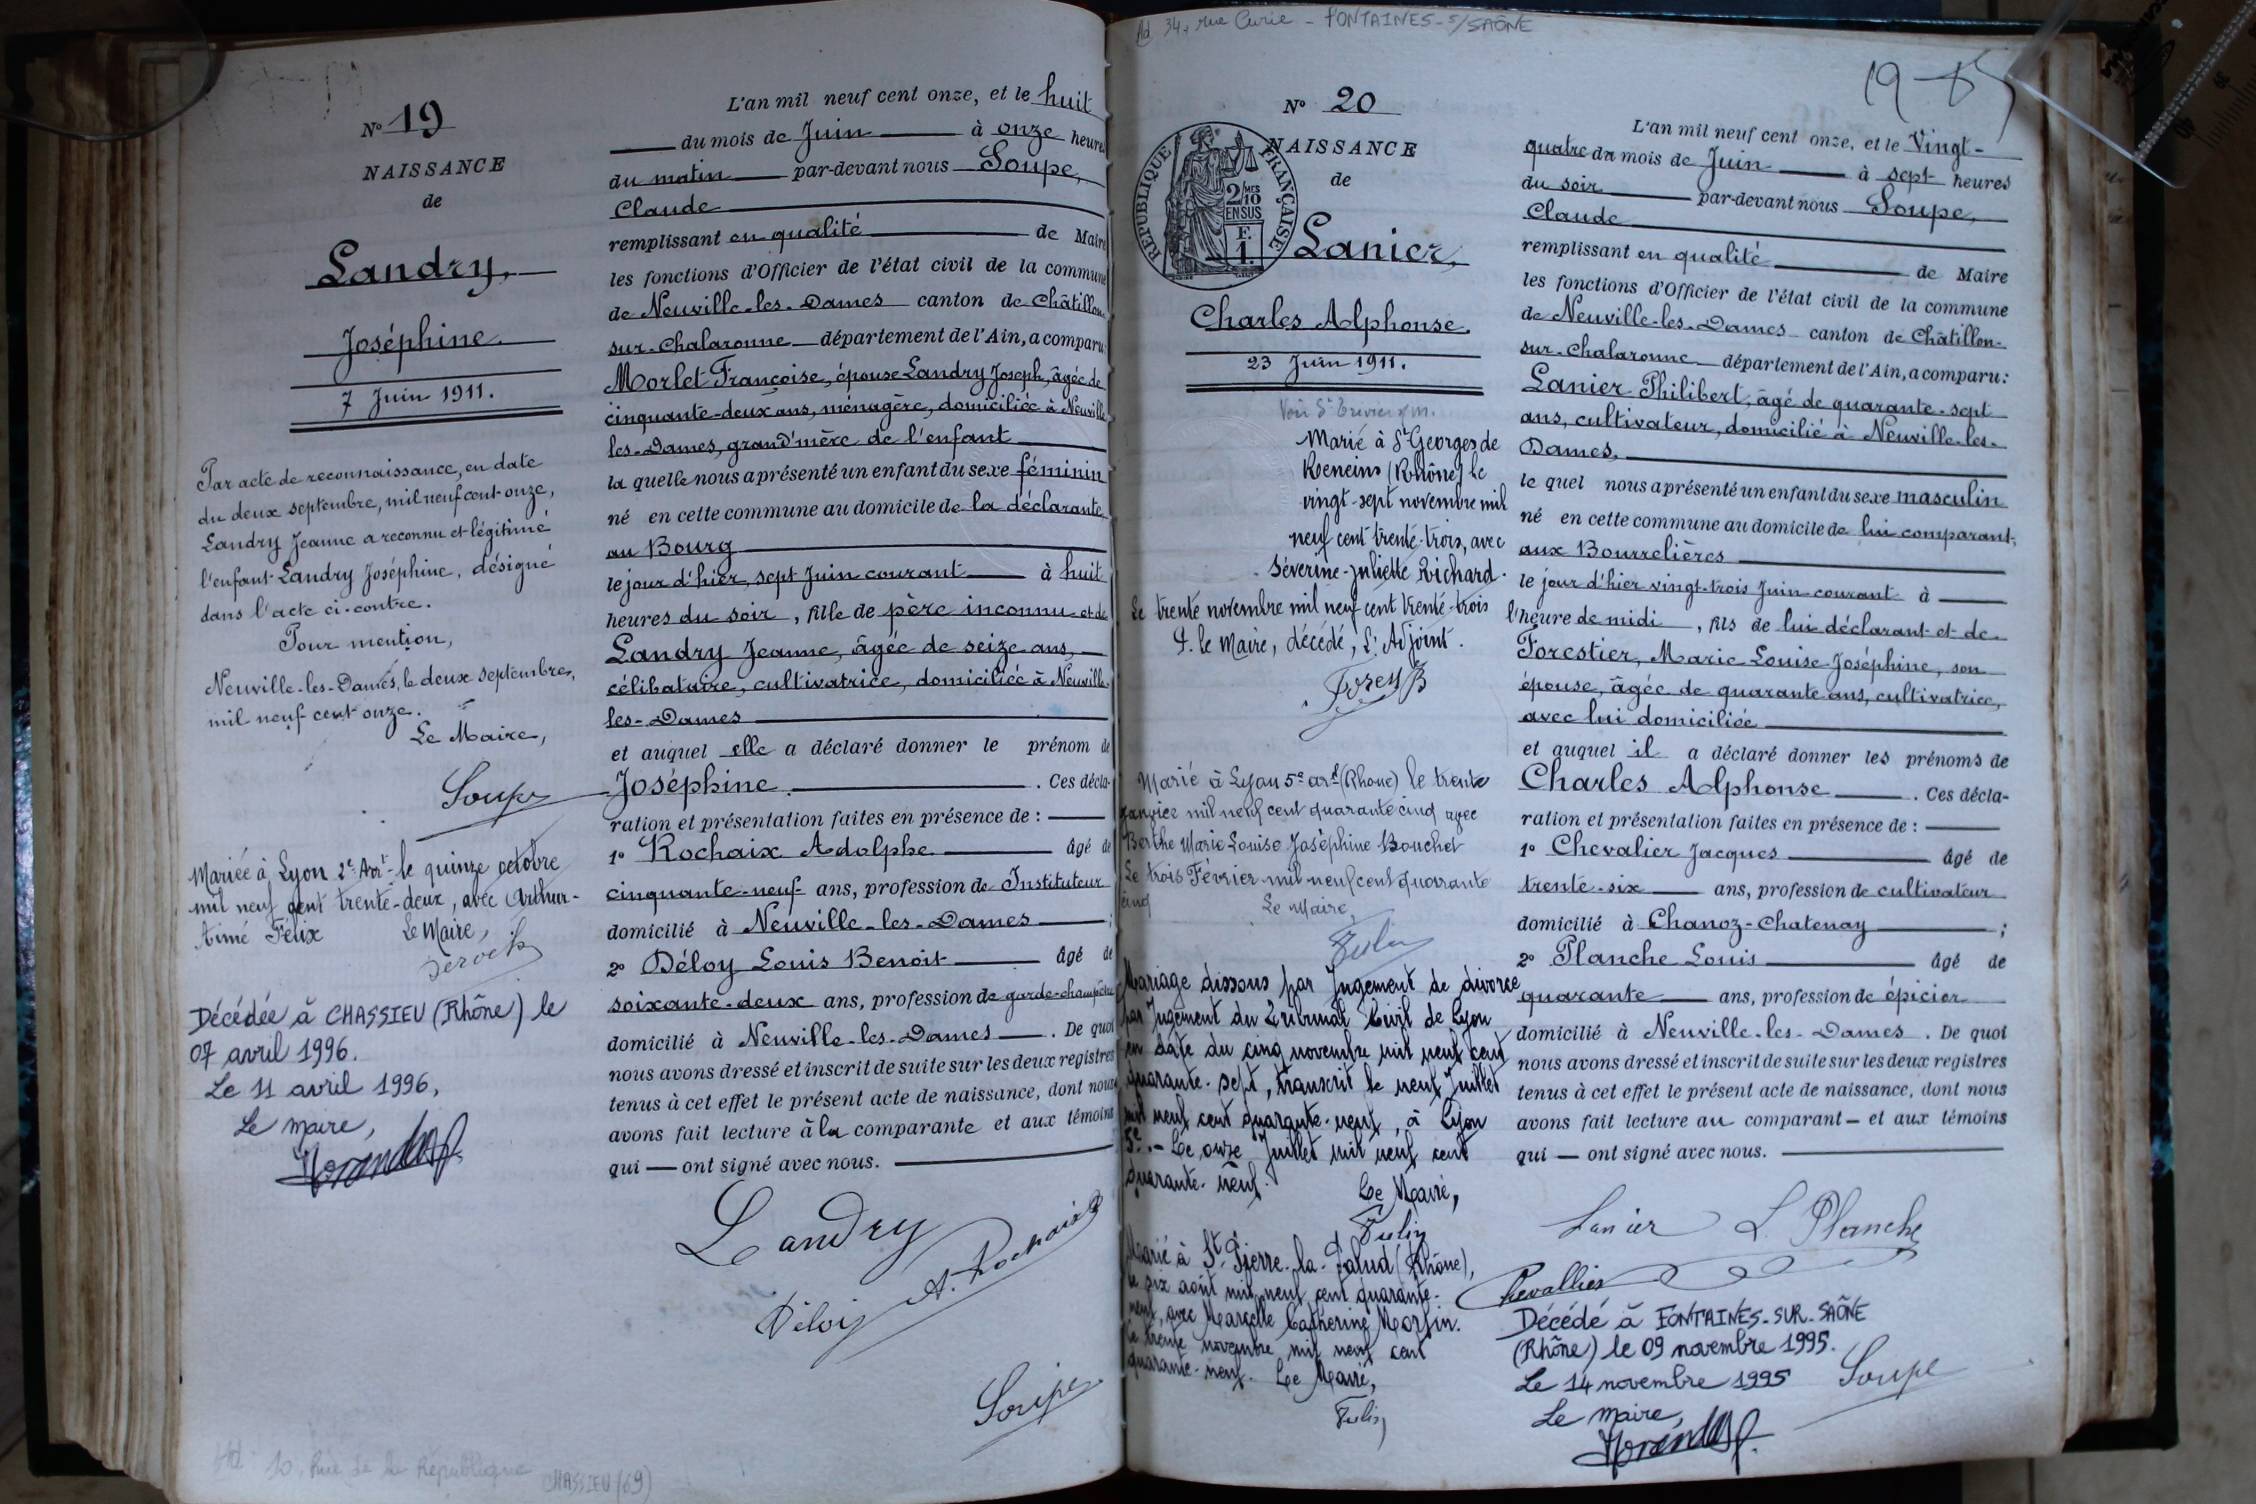 N° 19
NAISSANCE
de
Landry,
Joséphine.
7 Juin 1911.
Par acte de reconnaissance, en date
du deux septembre, mil neuf cent onze,
Landry Jeanne a reconnu et légitimé
l'enfant Landry Joséphine, désigné
dans l'acte ci-contre.
Pour mention,
Neuville-les-Dames, le deux septembre,
mil neuf cent onze.
Le Maire,
Soupe
Mariée à Lyon 2e Arrt le quinze octobre
mil neuf cent trente-deux, avec Arthur-
Aimé Félix Le Maire,
Décédée à CHASSIEU (Rhône) le
07 avril 1996.
Le 11 avril 1996,
Le maire,
Ad 10, Rue de la République CHASSIEU (69)
L'an mil neuf cent onze, et le huit
du mois de Juin à onze heures
du matin par-devant nous Soupe,
Claude
remplissant en qualité de Maire
les fonctions d'Officier de l'état civil de la commune
de Neuville-les-Dames canton de Châtillon
sur-Chalaronne département de l'Ain, a comparu:
Morlet Françoise, épouse Landry Joseph, âgée de
cinquante-deux ans, ménagère, domiciliée à Neuville
les-Dames, grand'mère de l'enfant
la quelle nous a présenté un enfant du sexe féminin
né en cette commune au domicile de la déclarante
au Bourg
le jour d'hier, sept Juin courant à huit
heures du soir, fille de père inconnu et de
Landry Jeanne, âgée de seize ans,
célibataire, cultivatrice, domiciliée à Neuville-
les-Dames
et auquel elle a déclaré donner le prénom de
Joséphine. Ces décla-
ration et présentation faites en présence de :
1° Rochaix Adolphe âgé de
cinquante-neuf ans, profession de Instituteur
domicilié à Neuville-les-Dames ;
2° Déloy Louis Benoit âgé de
soixante-deux ans, profession de garde-champêtre
domicilié à Neuville-les-Dames. De quoi
nous avons dressé et inscrit de suite sur les deux registres
tenus à cet effet le présent acte de naissance, dont nous
avons fait lecture à la comparante et aux témoins
qui — ont signé avec nous.
Landry
A. Rochaix
Déloy
Soupe
Ad 34, rue Curie - FONTAINES-S/SAÔNE
N° 20
NAISSANCE
de
RÉPUBLIQUE FRANÇAISE
2/10 MES
EN SUS
F.
1.
Lanier,
Charles Alphonse.
23 Juin 1911.
Marié à St Georges de
Reneins (Rhône) le
vingt-sept novembre mil
neuf cent trente-trois, avec
Séverine-Juliette Richard.
Le trente novembre mil neuf cent trente-trois
P. le Maire, décédé, L'Adjoint.
Marié à Lyon 5e ardt (Rhone) le trente
janvier mil neuf cent quarante cinq avec
Berthe Marie Louise Joséphine Bouchet
Le trois Février mil neuf cent quarante
cinq Le Maire,
Mariage dissous par Jugement de divorce
par Jugement du Tribunal Civil de Lyon
en date du cinq novembre mil neuf cent
quarante-sept, transcrit le neuf Juillet
mil neuf cent quarante-neuf, à Lyon
5e.- Le onze Juillet mil neuf cent
quarante-neuf.
Le Maire,
Marié à St Pierre-la-Palud (Rhône),
le six août mil neuf cent quarante-
neuf, avec Marcelle Catherine
Le trente novembre mil neuf cent
quarante-neuf. Le Maire,
L'an mil neuf cent onze, et le Vingt-
quatre du mois de Juin à sept heures
du soir par-devant nous Soupe,
Claude
remplissant en qualité de Maire
les fonctions d'Officier de l'état civil de la commune
de Neuville-les-Dames canton de Châtillon-
sur-Chalaronne département de l'Ain, a comparu:
Lanier Philibert, âgé de quarante-sept
ans, cultivateur, domicilié à Neuville-les-
Dames,
le quel nous a présenté un enfant du sexe masculin
né en cette commune au domicile de lui comparant,
aux Bourrelières
le jour d'hier vingt-trois Juin courant à
l'heure de midi, fils de lui déclarant et de
Forestier, Marie Louise Joséphine, son
épouse, âgée de quarante ans, cultivatrice,
avec lui domiciliée
et auquel il a déclaré donner les prénoms de
Charles Alphonse. Ces décla-
ration et présentation faites en présence de :
1° Chevalier Jacques âgé de
trente-six ans, profession de cultivateur
domicilié à Chanoz-Chatenay ;
2° Planche Louis âgé de
quarante ans, profession de épicier
domicilié à Neuville-les-Dames. De quoi
nous avons dressé et inscrit de suite sur les deux registres
tenus à cet effet le présent acte de naissance, dont nous
avons fait lecture au comparant — et aux témoins
qui — ont signé avec nous.
Lanier L. Planche
Chevallier
Décédé à FONTAINES-SUR-SAÔNE
(Rhône) le 09 novembre 1995.
Le 14 novembre 1995 Soupe
Le maire,